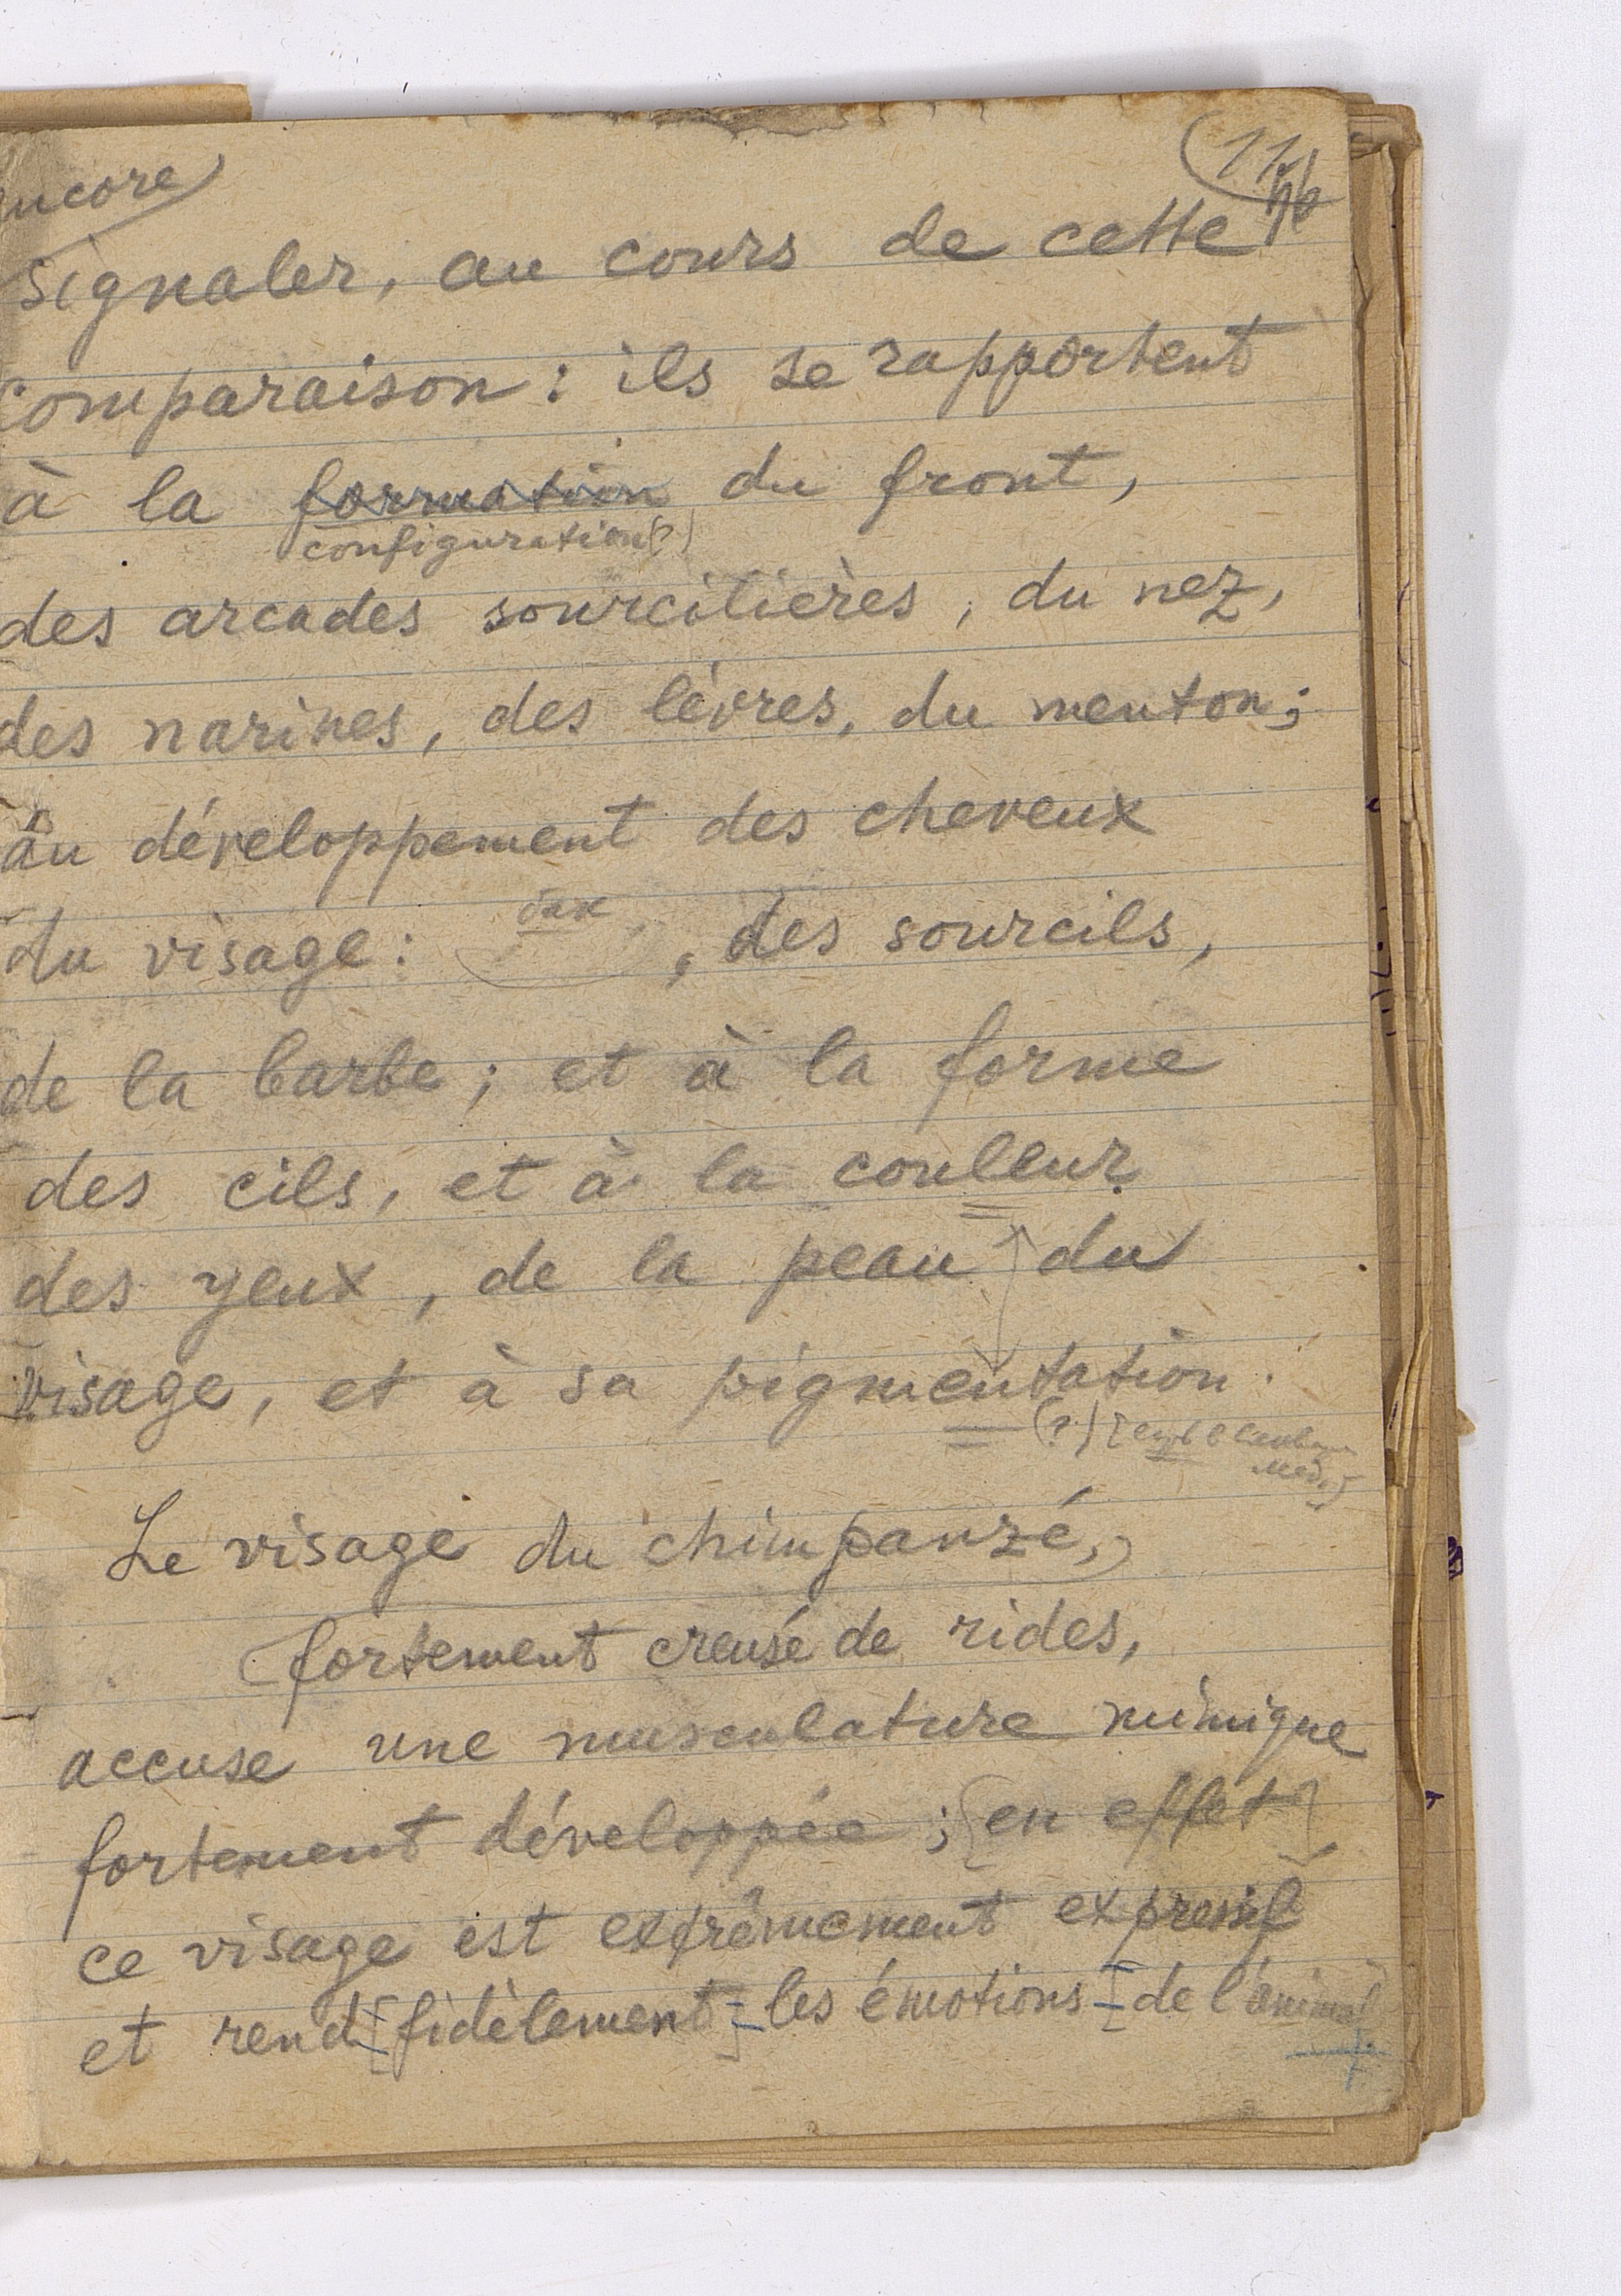 encore
11
signaler, au cours de cette
comparaison : ils se rapportent
à la formation du front,
configuration (?)
des arcades sourcilières, du nez,
des narines, des lèvres, du menton ;
au développement des cheveux
du visage : , des sourcils,
de la barbe ; et à la forme
des cils, et à la couleur
des yeux, de la peau du
visage, et à sa pigmentation.
(?)
Le visage du chimpanzé,
fortement creusé de rides,
accuse une musculature mimique
fortement développée ; [en effet]
ce visage est extrêmement expressif
et rend [fidèlement] les émotions de l'animal.